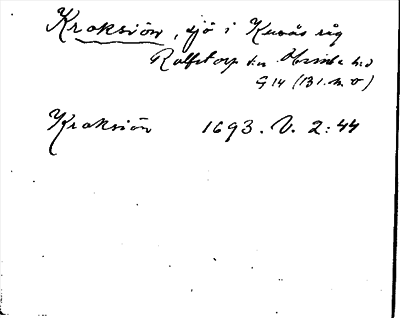 Kroksiön, sjö i Kuvås råg
Rolfstorp sn. Himle hd
G 14 (131. m. O)
Kroksiön 1693. V. 2:44